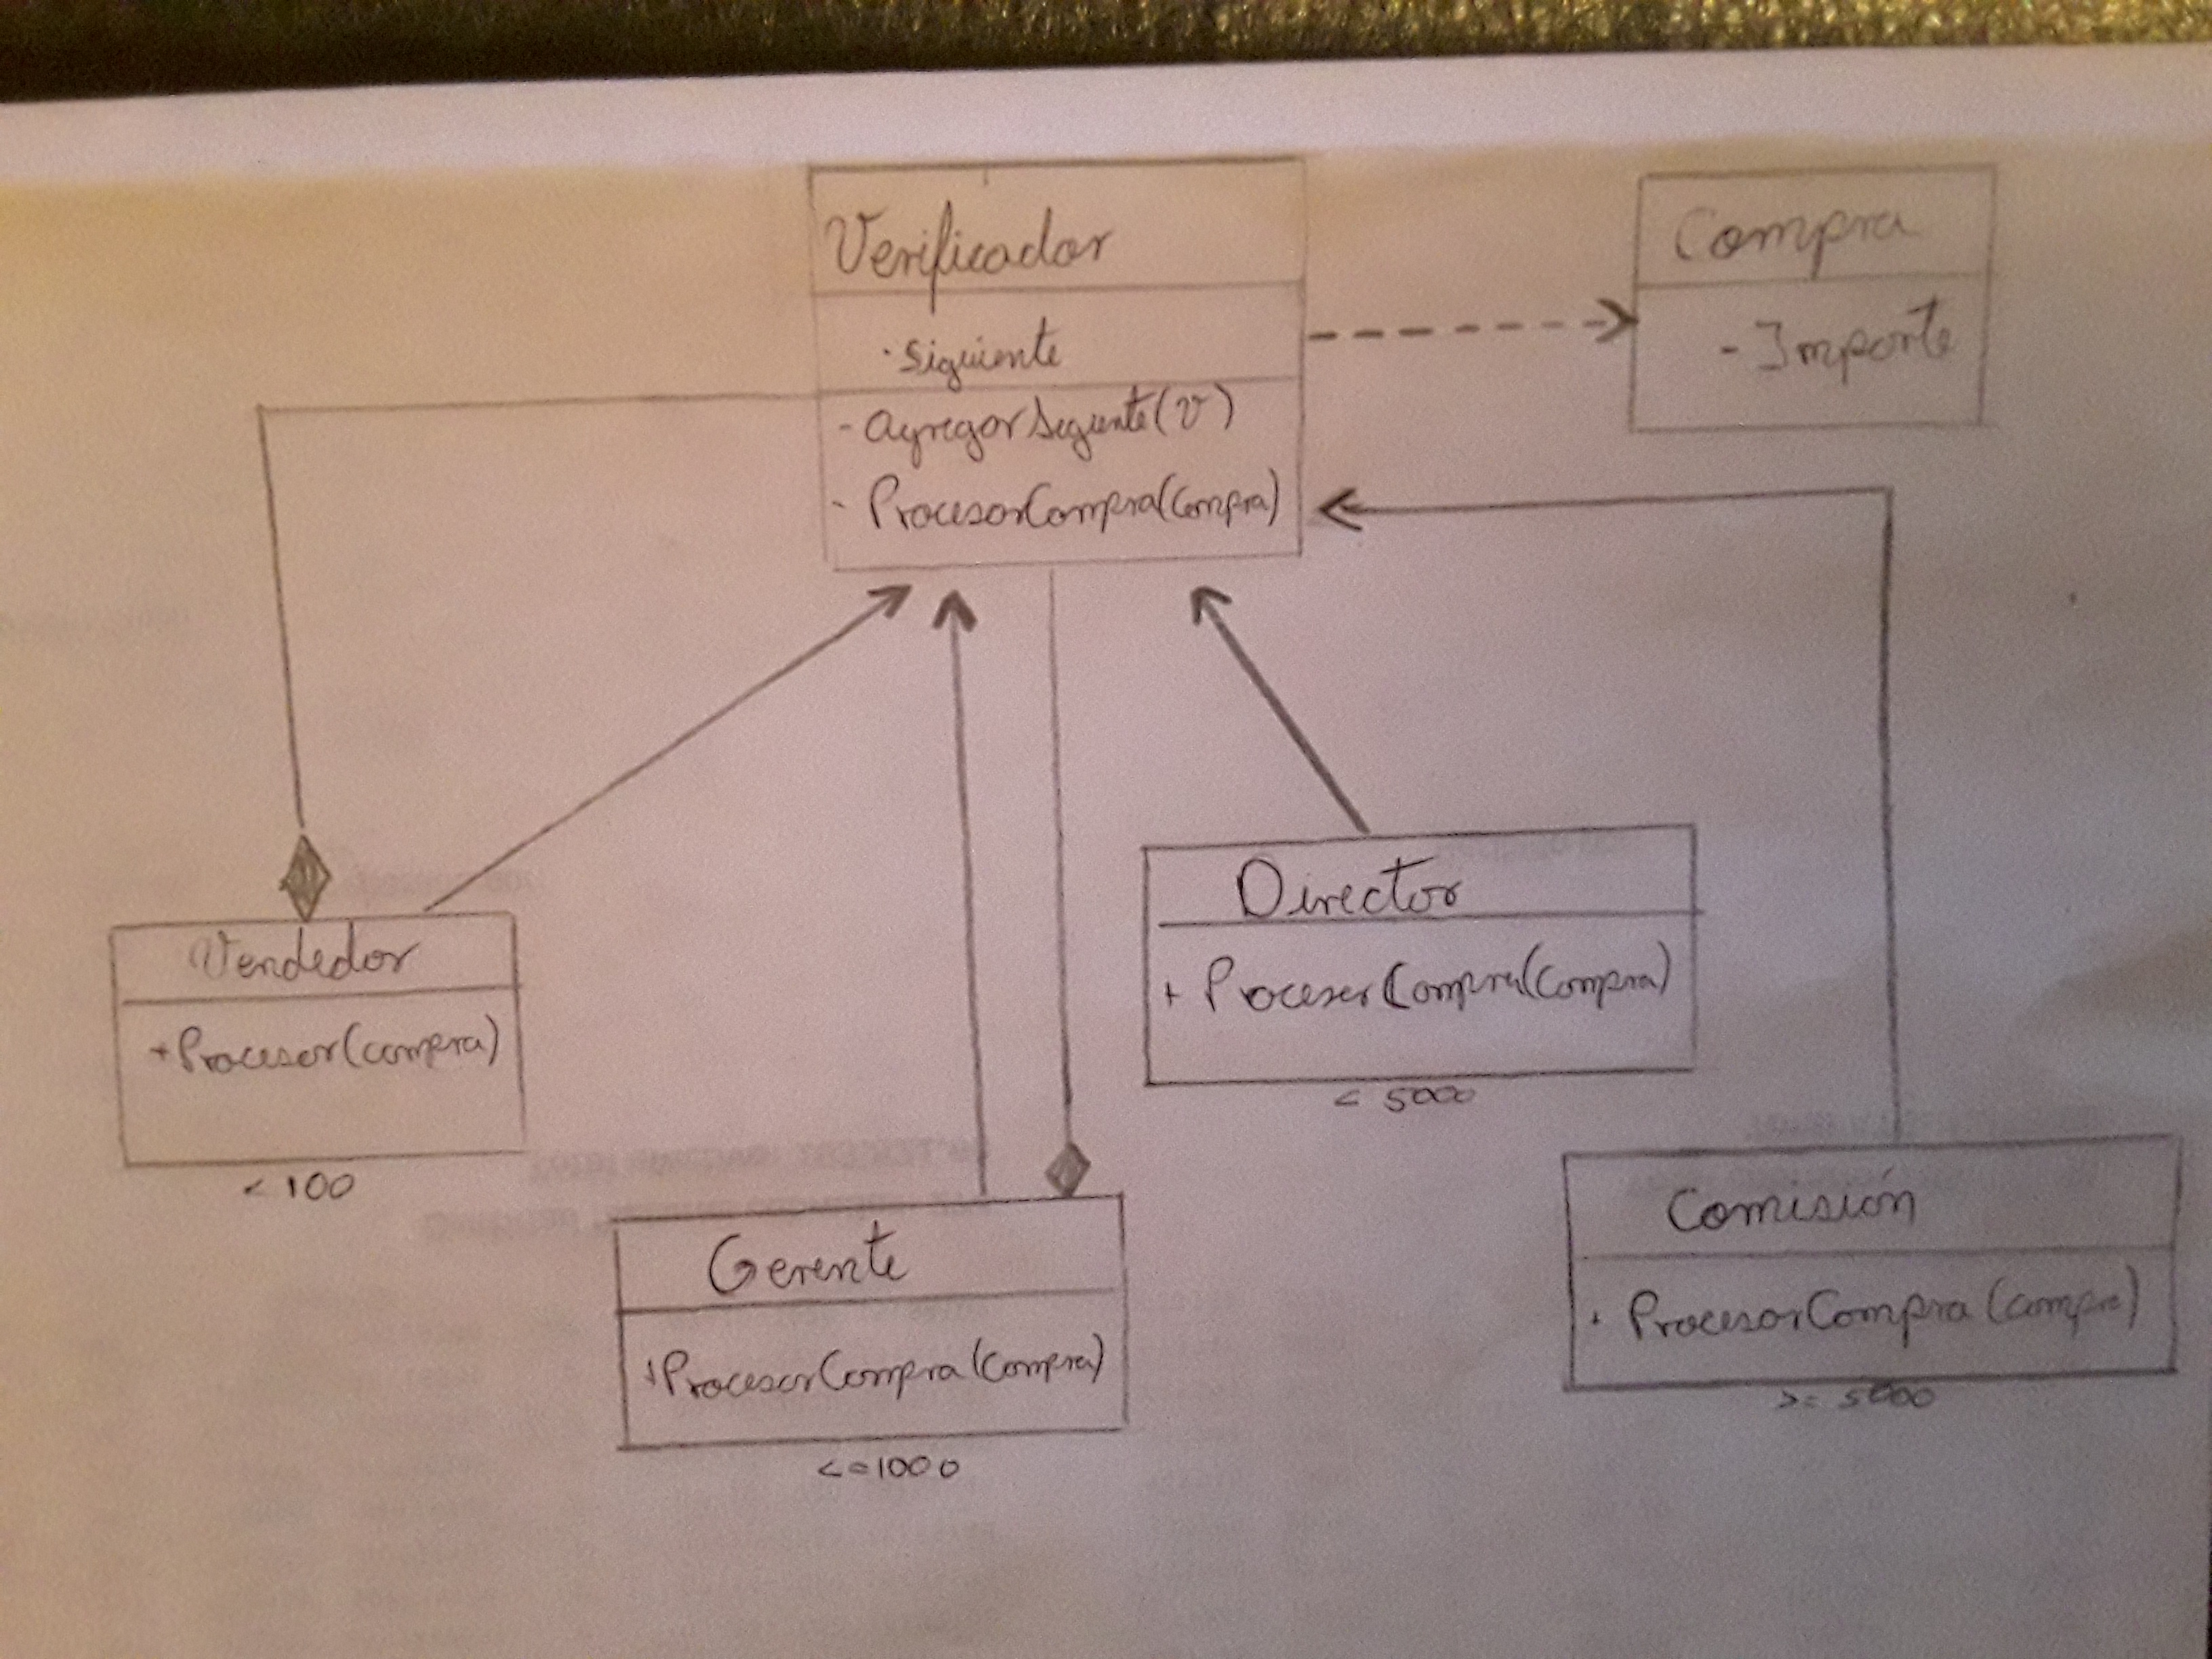 Verificador
· Siguiente
- AgregarSiguente(v)
- ProcesarCompra(Compra)
Compra
- Importe
Vendedor
+ Procesar(compra)
< 100
Director
+ ProcesarCompra(Compra)
< 5000
Gerente
+ ProcesarCompra(Compra)
<=1000
Comisión
+ ProcesarCompra(Compra)
>= 5000